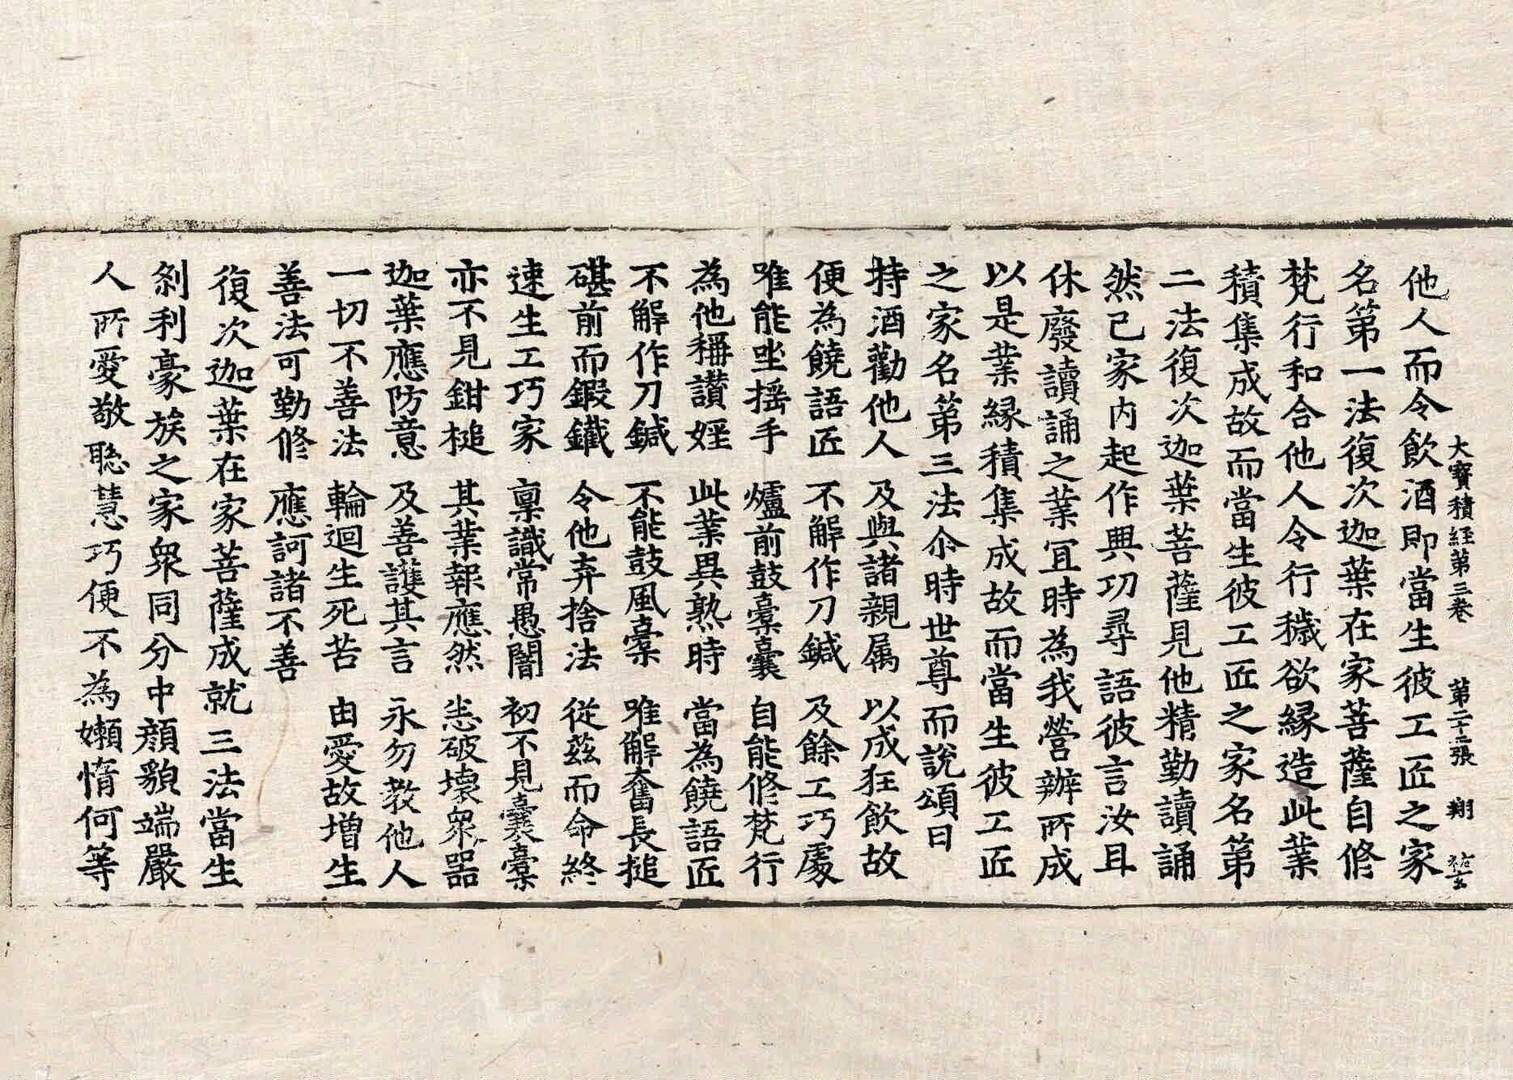 大寶積経第三卷 第二十二張 翔
他人而令飲酒即當生彼工匠之家
名第一法復次迦葉在家菩薩自修
梵行和合他人令行穢欲縁造此業
積集成故而當生彼工匠之家名第
二法復次迦葉菩薩見他精勤讀誦
然己家内起作興功尋語彼言汝且
休廢讀誦之業冝時為我營辦所成
以是業縁積集成故而當生彼工匠
之家名第三法尒時世尊而說頌曰
持酒勸他人 及與諸親属 以成狂飲故
便為饒語匠 不解作刀鍼 及餘工巧處
唯能坐揺手 爐前鼓橐囊 自能修梵行
為他稱讃婬 此業異熟時 當為饒語匠
不解作刀鍼 不能鼓風橐 唯解奮長搥
碪前而鍜鐵 令他弃捨法 從茲而命終
速生工巧家 稟識常愚闇 初不見囊橐
亦不見鉗槌 其業報應然 恚破壊衆器
迦葉應防意 及善護其言 永勿教他人
一切不善法 輪迴生死苦 由愛故増生
善法可勤修 應訶諸不善
復次迦葉在家菩薩成就三法當生
剎利豪族之家衆同分中顔貌端嚴
人所愛敬聡慧巧便不為嬾惰何等